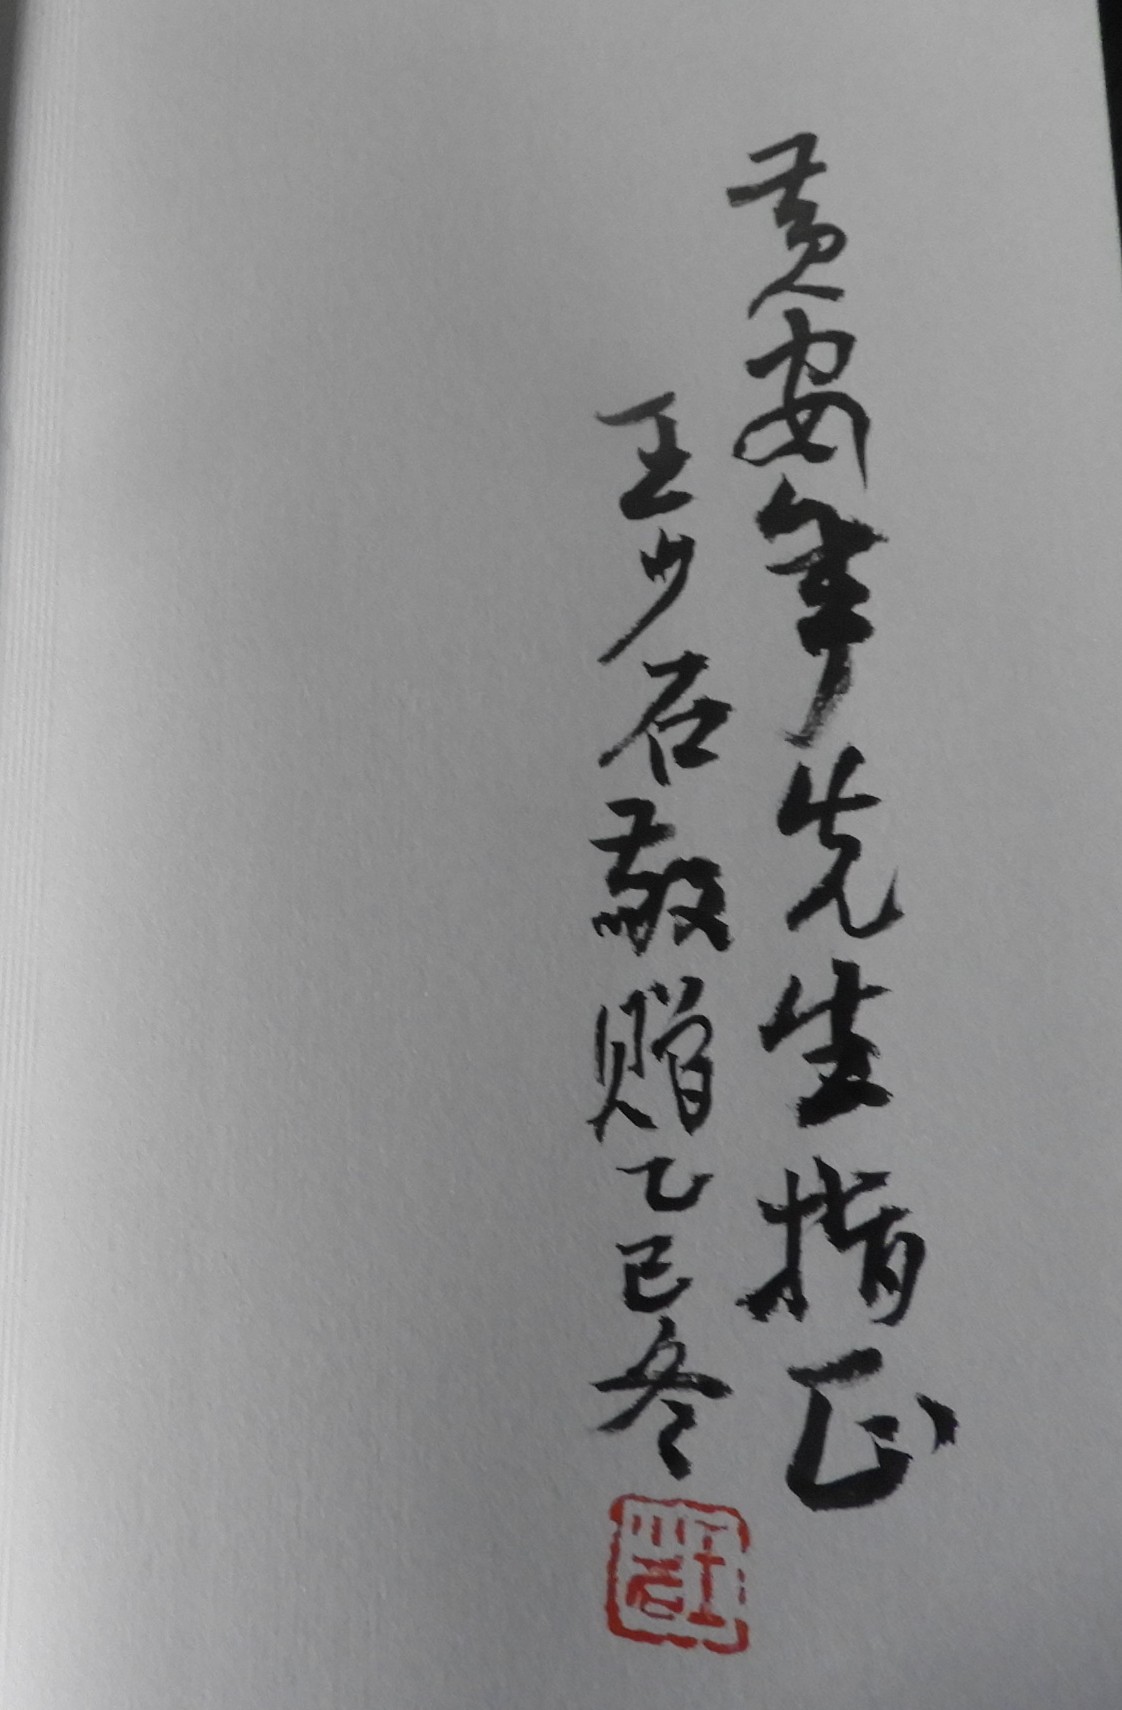 黄安年先生指正
王少石敬赠乙巳冬
王少石